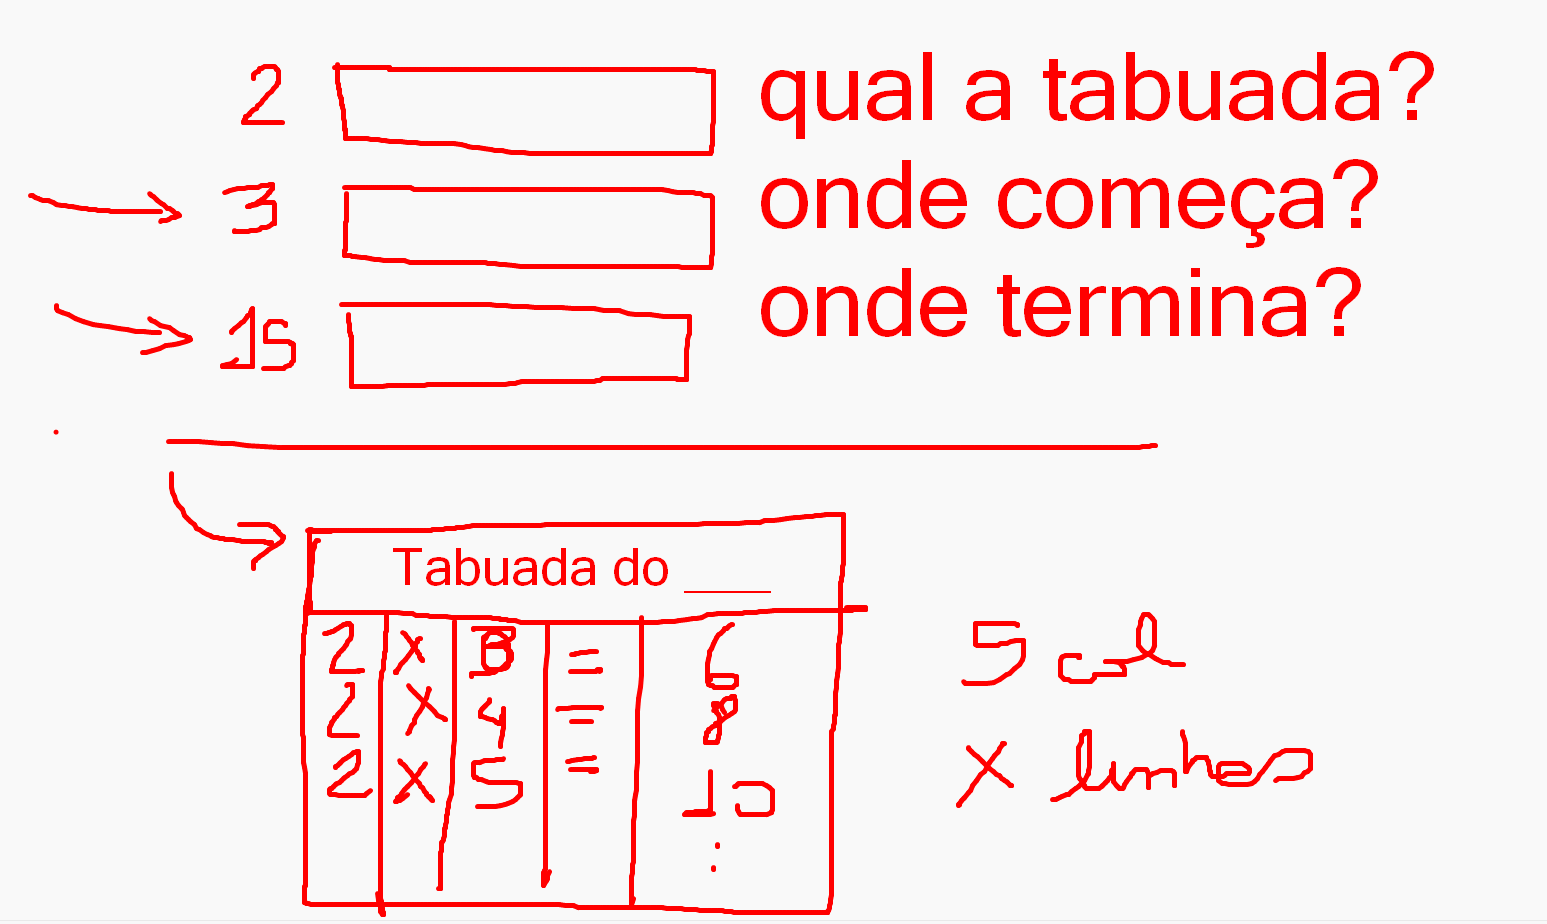 2 qual a tabuada?
3 onde começa?
15 onde termina?
Tabuada do ____
2 x 3 = 6
2 x 4 = 8
2 x 5 = 10
:
5 col
X linhas